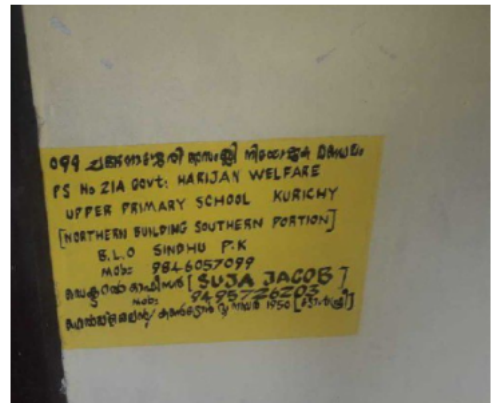 099 ചങ്ങനാശ്ശേരി നിയോജക മണ്ഡലം
PS No 21A GOVT: HARIJAN WELFARE
UPPER PRIMARY SCHOOL KURICHY
[NORTHERN BUILDING SOUTHERN PORTION]
B.L.O SINDHU P.K
Mob: 9846057099
സെക്ടറൽ ഓഫീസർ [SUJA JACOB]
Mob: 9495726203
നമ്പർ 1950